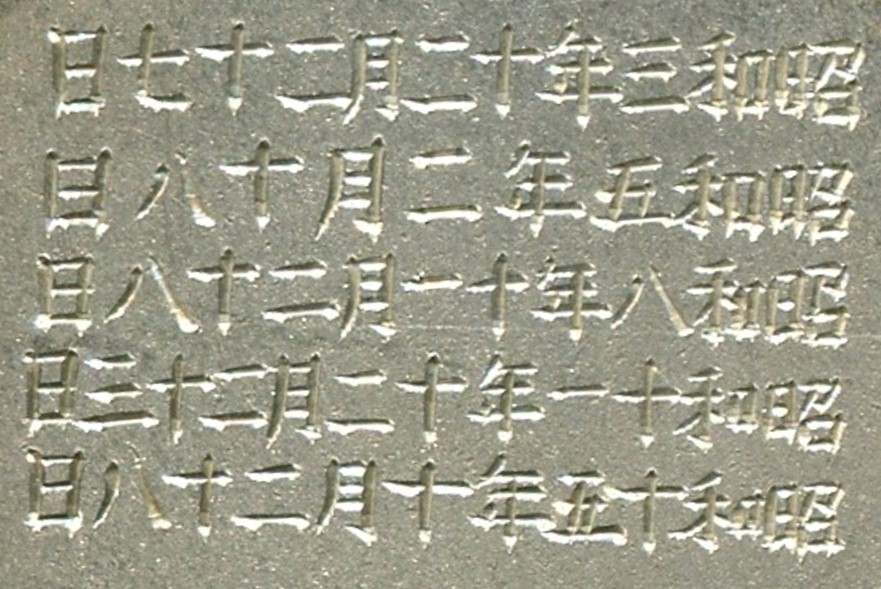 昭和三年十二月二十七日
昭和五年二月十八日
昭和八年十一月二十八日
昭和十一年十二月二十三日
昭和十五年十月二十八日